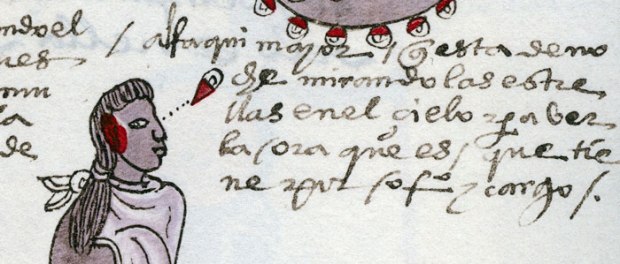 ndoel
nes
mu
la
de
/ alfaqui mayor / q esta de no
che mirando las estre
llas en el çielo pa ver
la ora que es / que tie
ne por sofo y cargo /.